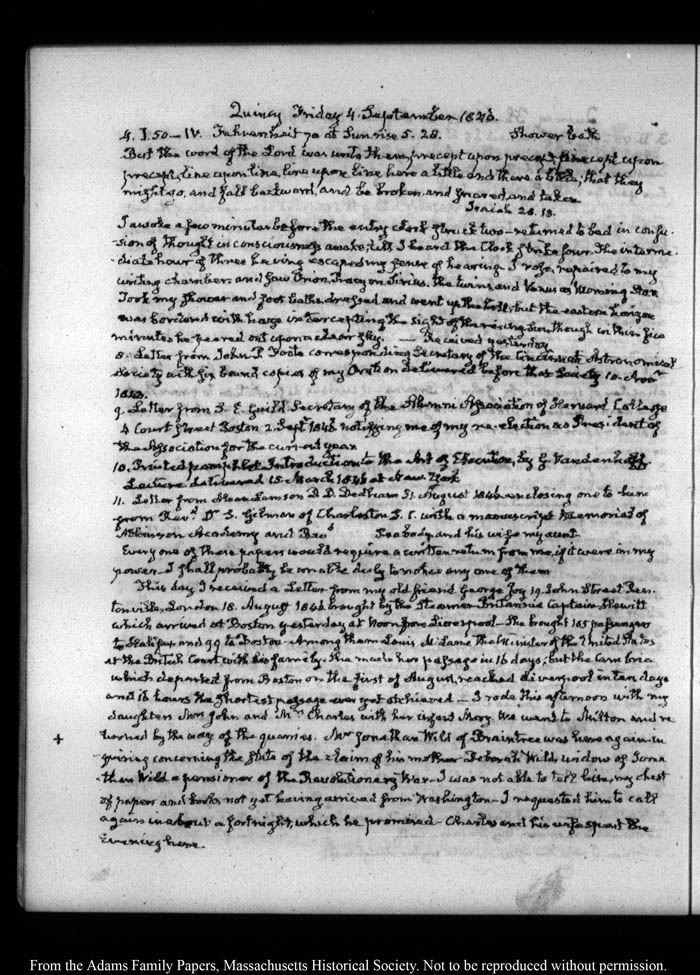 Quincy Friday 4. September 1846.
4. I. 50 — IV. Fahrenheit 70 at Sunrise 5. 28. Shower bath
But the word of the Lord was unto them, precept upon precept, precept upon
precept, line upon line, line upon line, here a little and there a little; that they
might go, and fall backward, and be broken, and snared, and taken
Isaiah 28. 13.
I awoke a few minutes before the entry clock struck two — returned to bed in confu-
sion of thought in consciousness awake, till I heard the Clock strike four. The interme-
diate hour of three having escaped my sense of hearing. I rose, repaired to my
writing chamber, and saw Orion, Procyon, Sirius, the twins and Venus as Morning Star
Took my Shower and foot baths, dressed and went up the hill; but the eastern horizon
was bordered with haze intercepting the sight of the rising Sun, though within five
minutes he peered out upon a clear sky. — Received yesterday
8. Letter from John P. Foote corresponding Secretary of the Cincinnati Astronomical
Society with six bound copies of my Oration delivered before that Society 10. Novr
1843.
9. Letter from S. E. Guild Secretary of the Alumni Association of Harvard College
4 Court Street Boston 2. Septr 1846 notifying me of my re-election as President of
the Association for the current year.
10. Printed pamphlet Introduction to the Art of Elocution, by G Vandenhoff
Lecture delivered 15. March 1846 at New York
11. Letter from Alvan Lamson D. D. Dedham 31. August 1846 enclosing one to him
from Revd. Dr S. Gilman of Charleston S. C. with a manuscript Memorial of
Atkinson Academy and Revd Peabody and his wife my aunt.
Every one of these papers would require a written return from me, if it were in my
power. I shall probably be unable duly to notice any one of them
This day I received a Letter from my old friend George Joy 19. John Street Pen-
tonville, London 18. August 1846 brought by the Steamer Britannia Captain Hewitt
which arrived at Boston yesterday at Noon from Liverpool — She brought 165 passengers
to Halifax and 99 to Boston. Among them Louis McLane the Minister of the United States
at the British Court with his family. She made her passage in 16 days; but the Cambria
which departed from Boston on the first of August, reached Liverpool in ten days
and 16 hours the shortest passage ever yet achieved — I rode this afternoon with my
daughters Mrs John and Mrs Charles with her infant Mary. We went to Milton and re
turned by the way of the quarries. Mr Jonathan Wild of Braintree was here again in-
+ quiring concerning the state of the claim of his mother Deborah Wild, widow of Jona-
than Wild a pensioner of the Revolutionary War. I was not able to tell him, my chest
of papers and books not yet having arrived from Washington — I requested him to call
again in about a fortnight, which he promised — Charles and his wife spent the
Evening here.
From the Adams Family Papers, Massachusetts Historical Society. Not to be reproduced without permission.